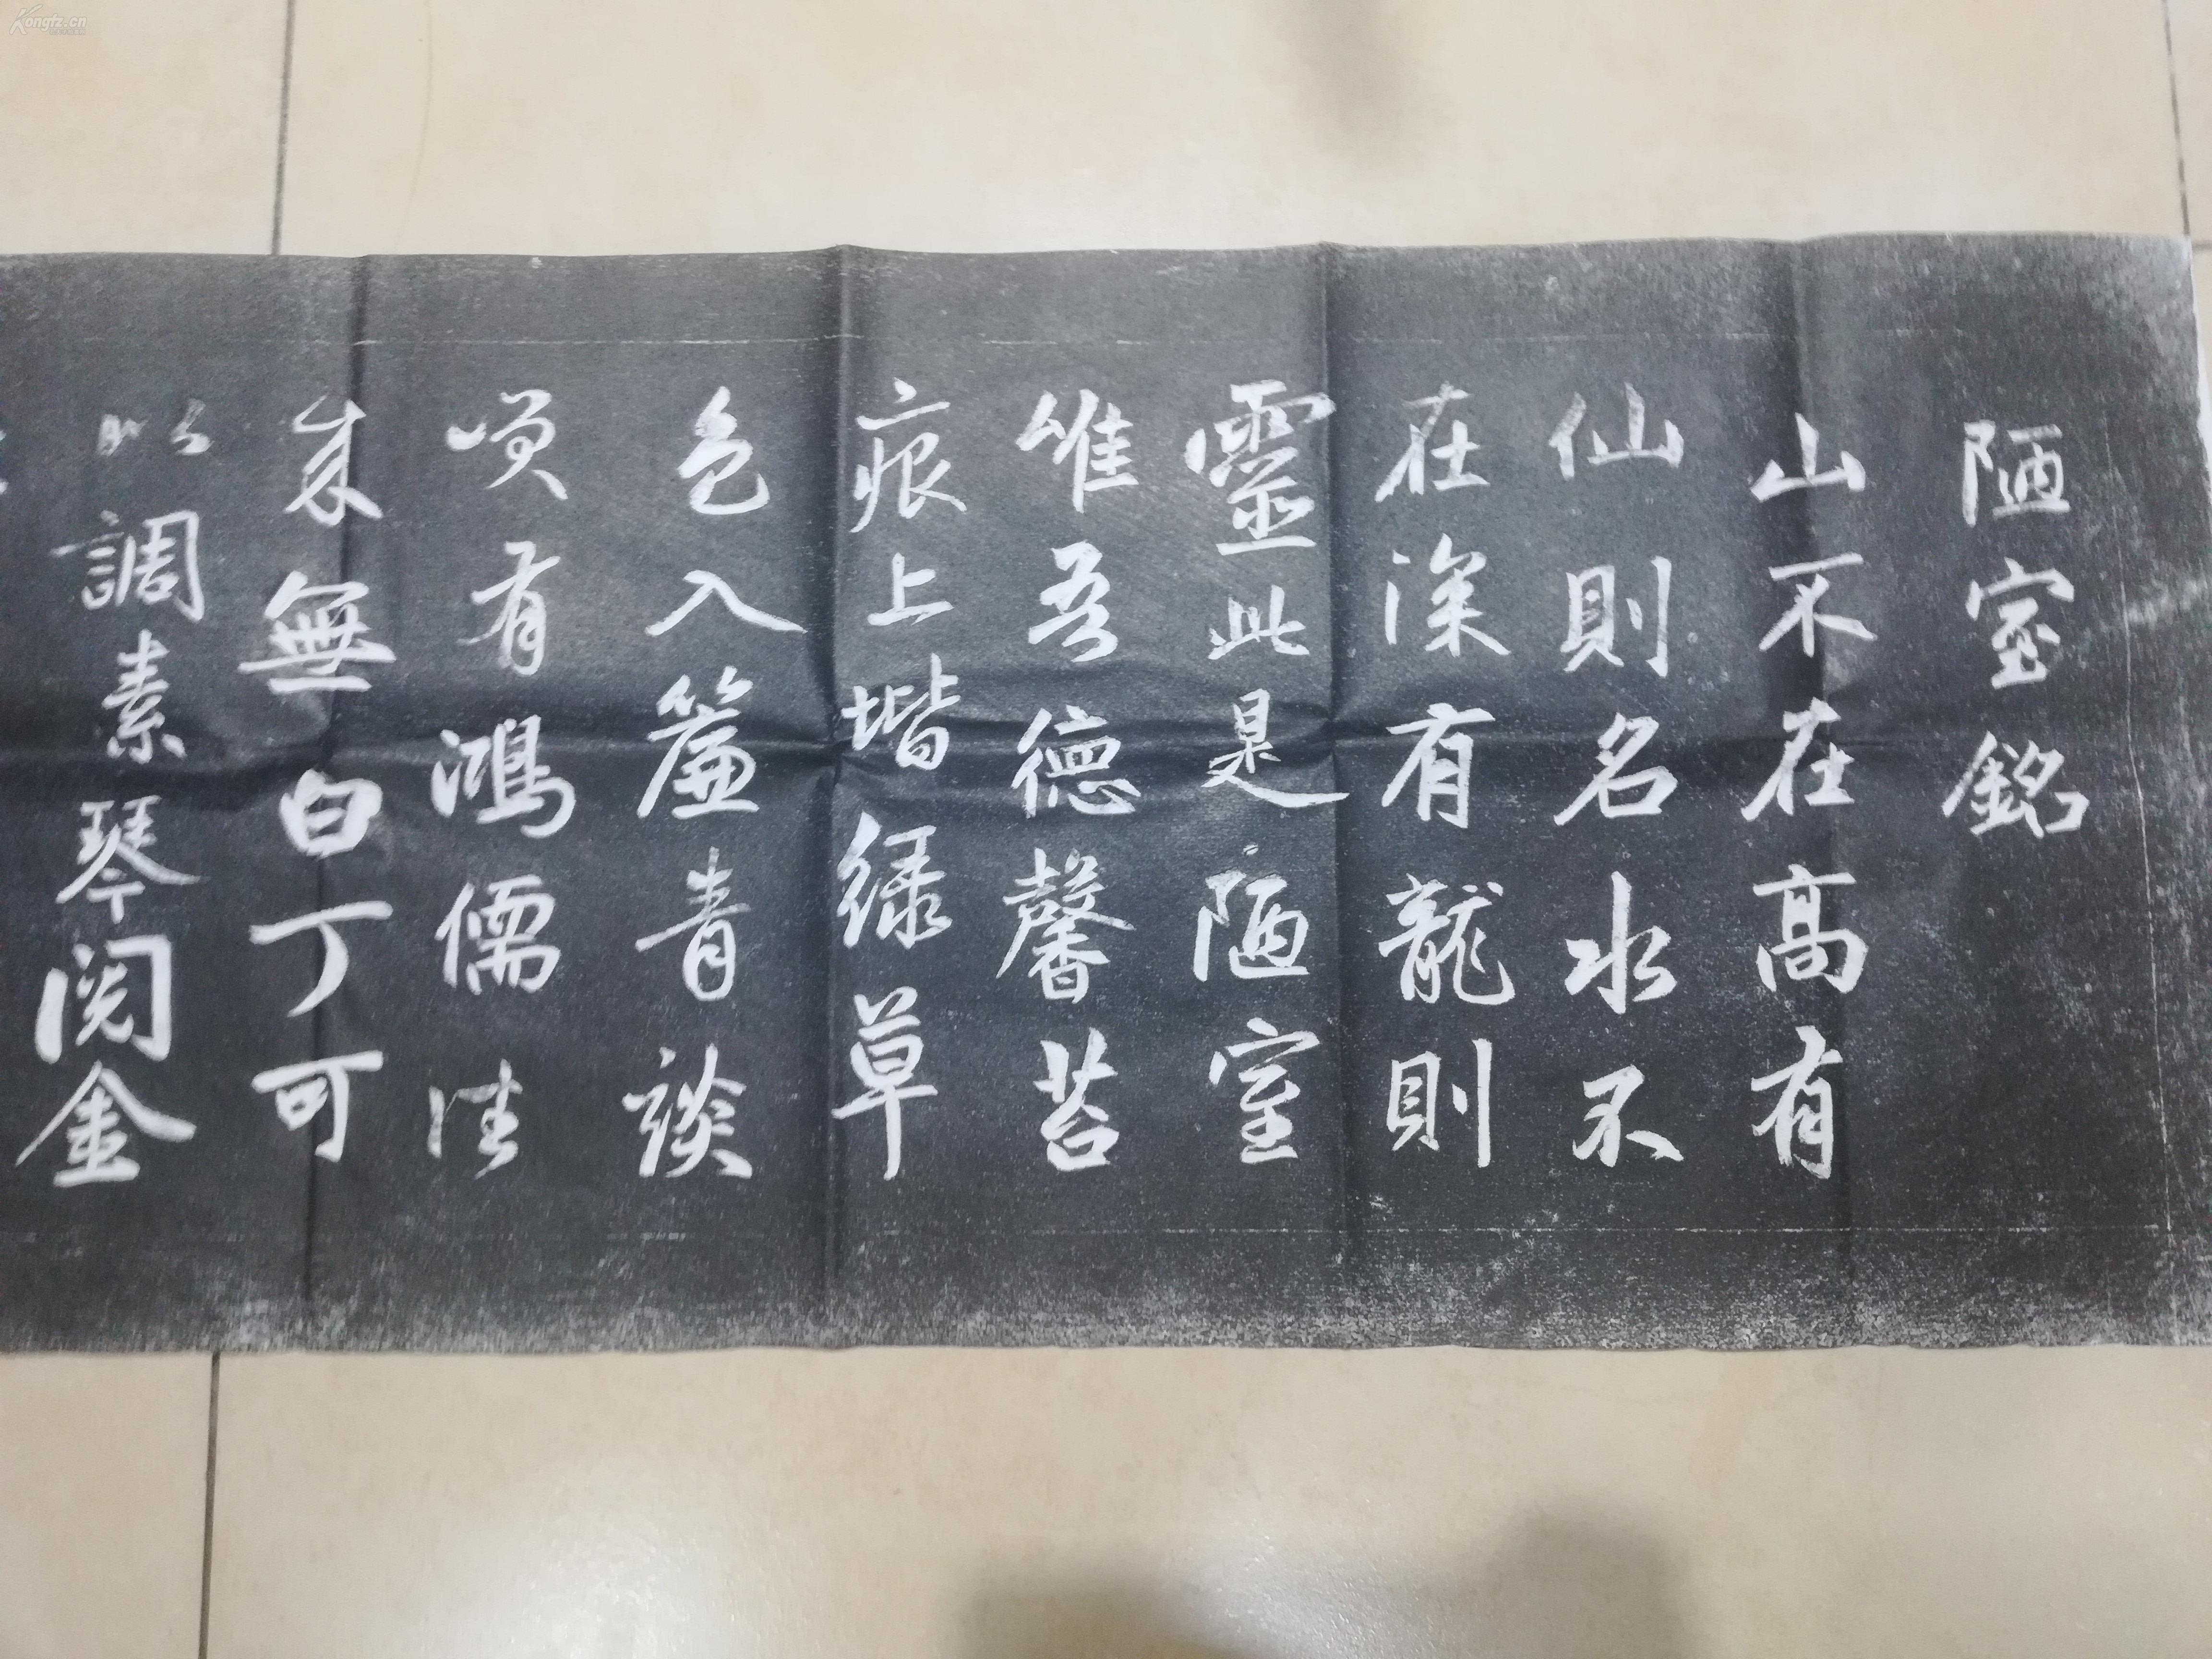 陋室銘
山不在高有
仙則名水不
在深有龍則
靈此是陋室
惟吾德馨苔
痕上堦緑草
色入簾青談
笑有鴻儒往
来無白丁可
以調素琴閱金
Kongfz.cn